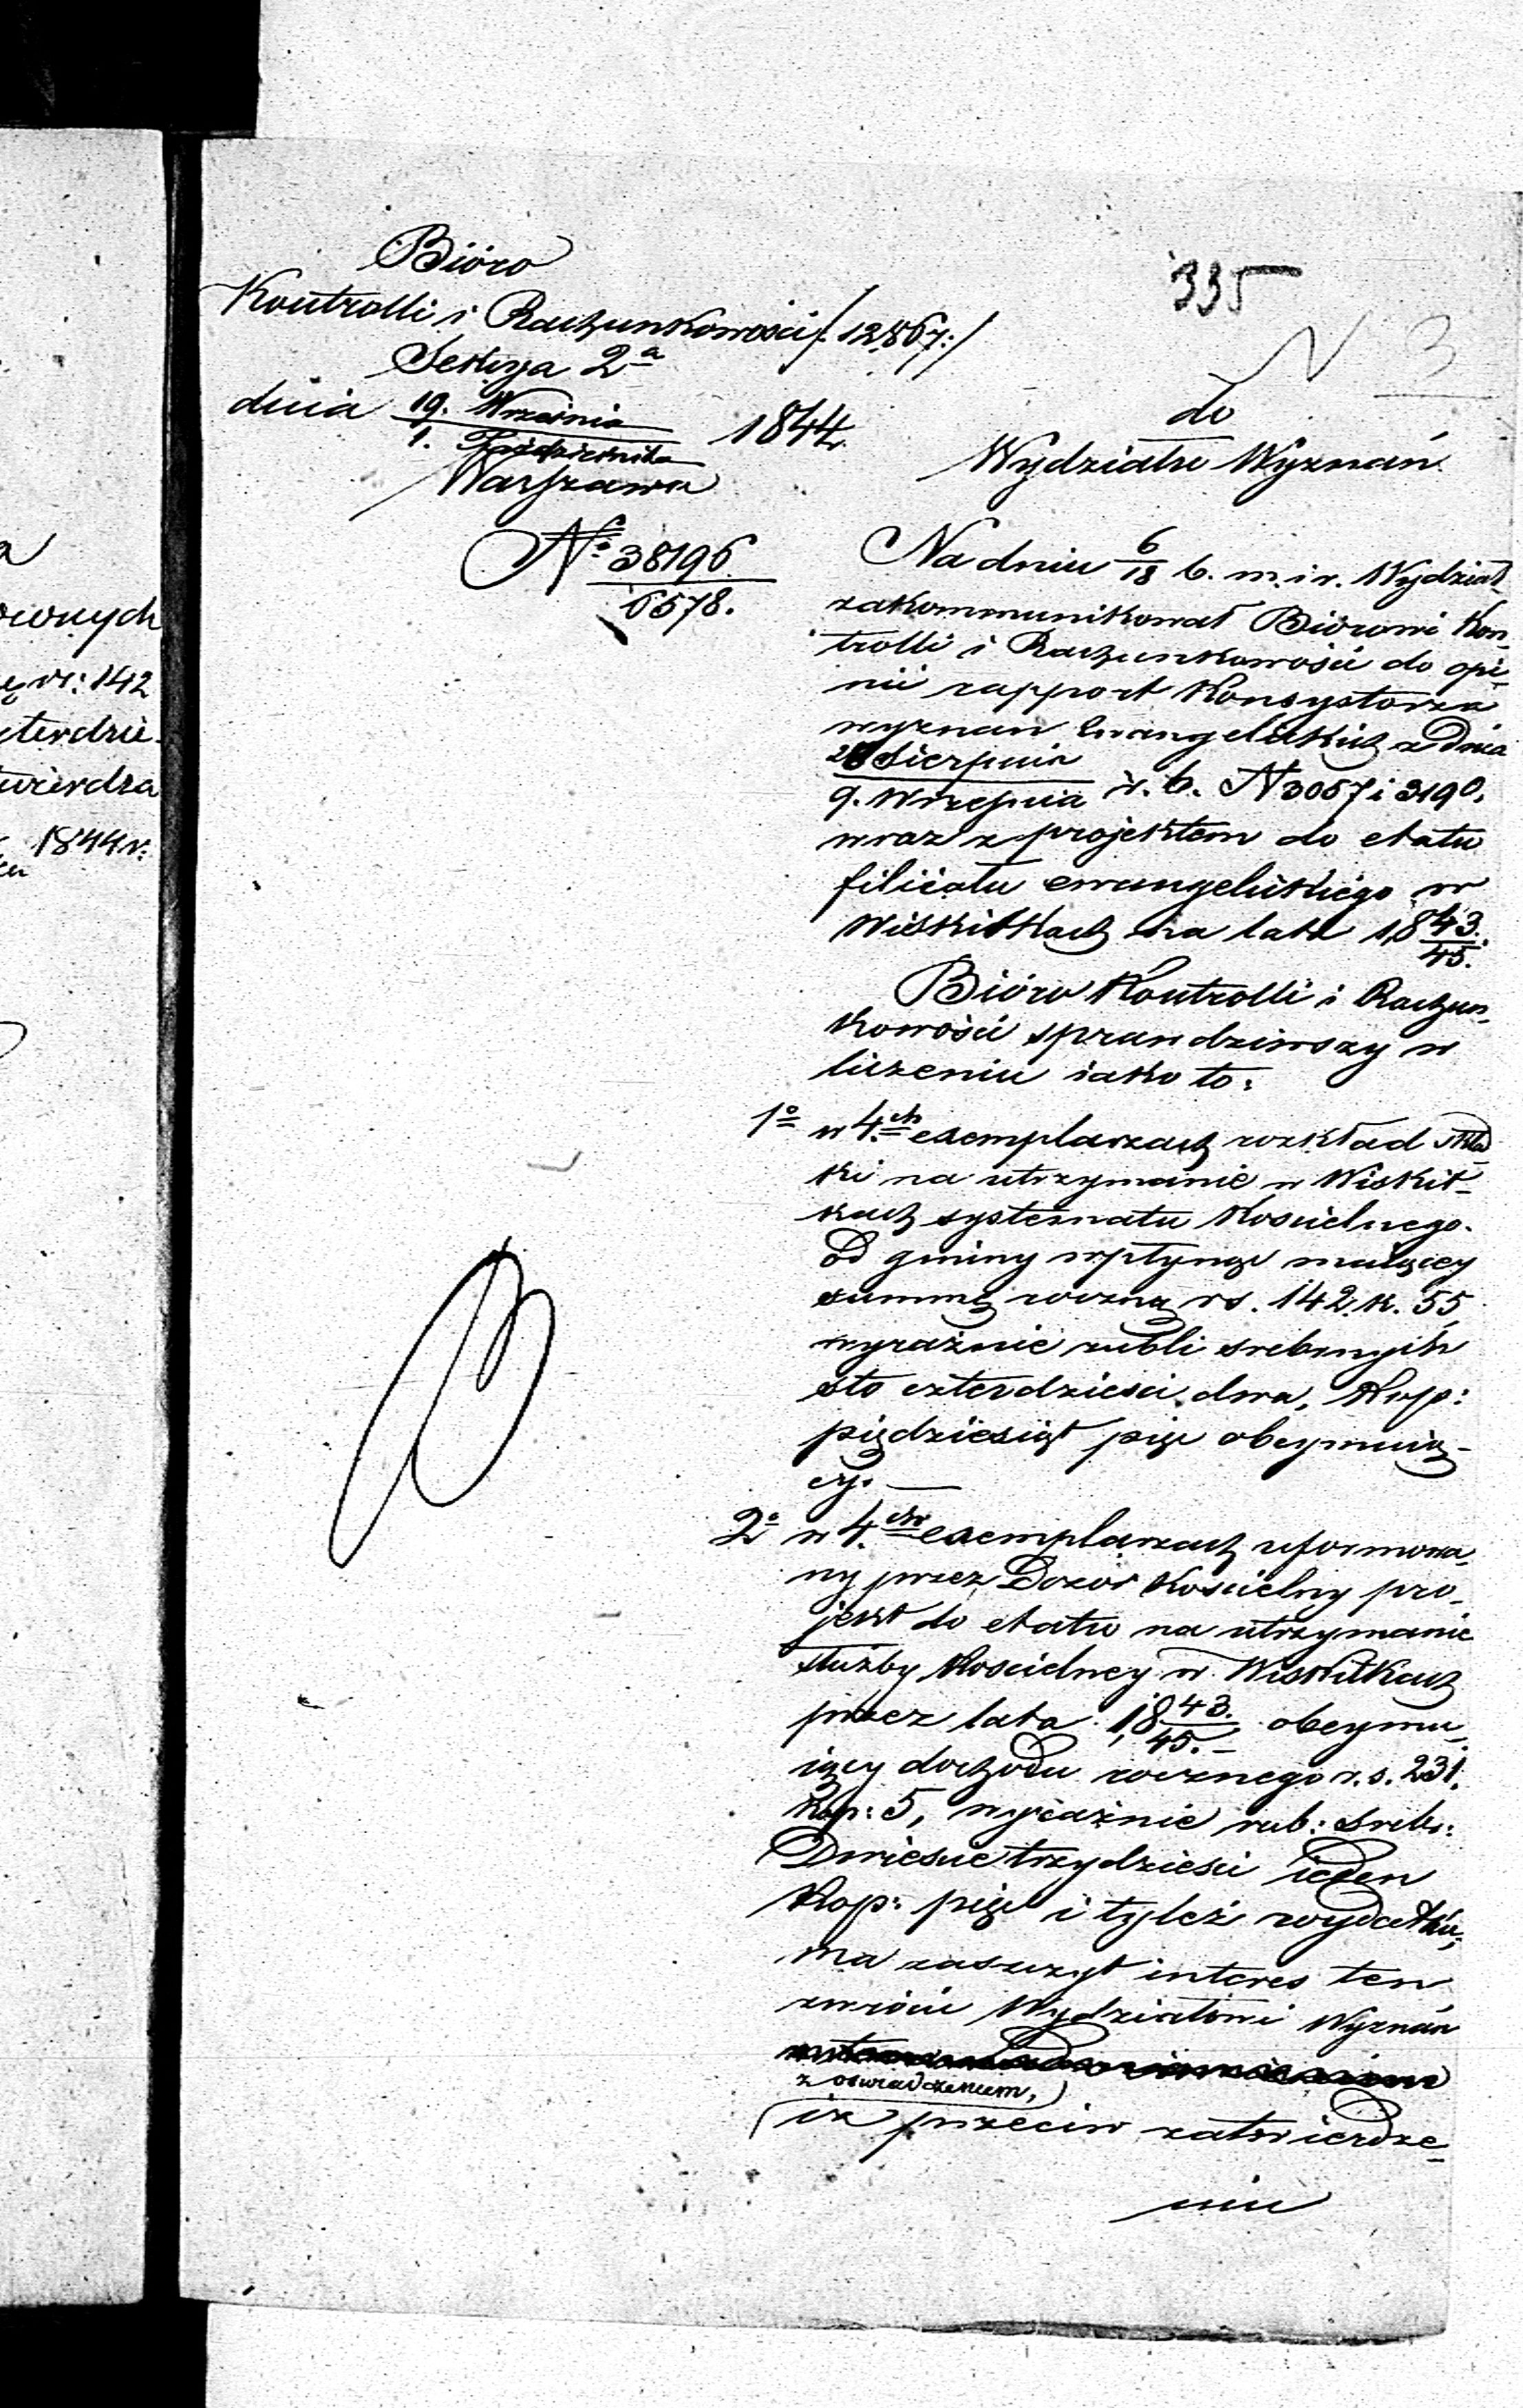 Bióro
Kontrolli i Rachunkowości /:12,867:/
Sekcya 2a
dnia 19. Września
1. Października 1844.
Warszawa
No 38196
6578.
335
N 3
do
Wydziału Wyznań
Na dniu 6/18 b. m. i r. Wydział
zakommunikował Biórowi Kon-
trolli i Rachunkowości do opi-
nii rapport Konsystorza
wyznań Ewangelickich z dnia
28 Sierpnia
9. Września r. b. N 3057 i 3190,
wraz z projektem do etatu
filiału ewangelickiego w
Wiskitkach na lata 1843/45.
Bióro Kontrolli i Rachun-
kowości sprawdziwszy w
liczeniu iako to:
1o w 4.ch exemplarzach rozkład skład
ki na utrzymanie w Wiskit-
kach systematu Kościelnego
od gminy wpłynąć maiącey
summę roczną rs. 142. k. 55
wyraźnie rubli srebrnych
sto czterdzieści dwa, Kop:
pięćdziesiąt pięć obeymuią-
cy. —
2o w 4.ch exemplarzach uformowa-
ny przez Dozór Kościelny pro-
jekt do etatu na utrzymanie
służby Kościelney w Wiskitkach
przez lata 1843/45. obeymu-
iący dochodu rocznego r.s. 231.
Kop: 5, wyraźnie rub: srebr:
Dwieście trzydzieści ieden
Kop: pięć i tyleż wydatku,
ma zaszczyt interes ten
zwrócić Wydziałowi Wyznań
z oświadczeniem,
iż przeciw zatwierdze-
niu
wnych
rs: 142
czterdzie-
twierdza
1844 r.